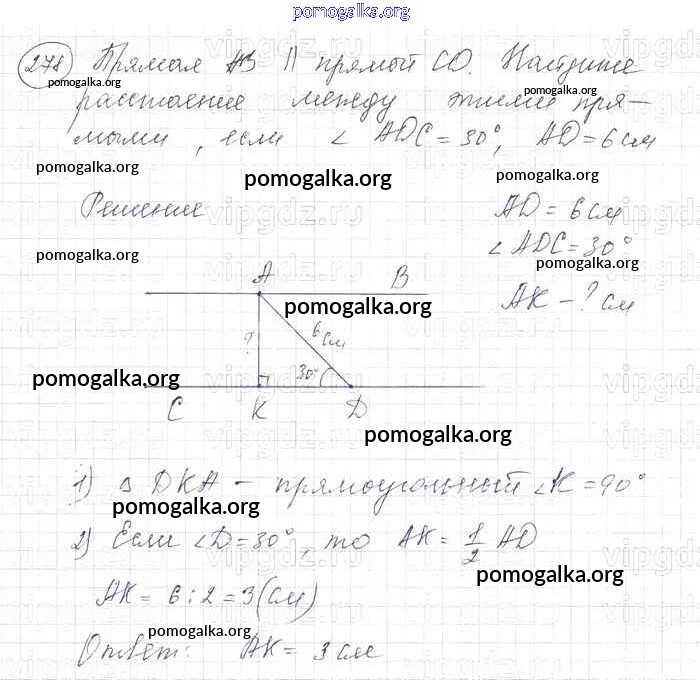 pomogalka.org
278 Прямая AB || прямой CD. Найдите
pomogalka.org
pomogalka.org
расстояние между этими пря-
мыми, если ∠ADC = 30°, AD = 6 см
pomogalka.org
pomogalka.org
pomogalka.org
Решение
AD = 6 см
∠ADC = 30°
pomogalka.org
pomogalka.org
AK - ? см
A B
pomogalka.org
? 6 см
30°
pomogalka.org
C K D
pomogalka.org
1) Δ DKA - прямоугольный ∠K = 90°
pomogalka.org
2) Если ∠D = 30°, то AK = 1/2 AD
pomogalka.org
AK = 6 : 2 = 3 (см)
pomogalka.org
Ответ: AK = 3 см